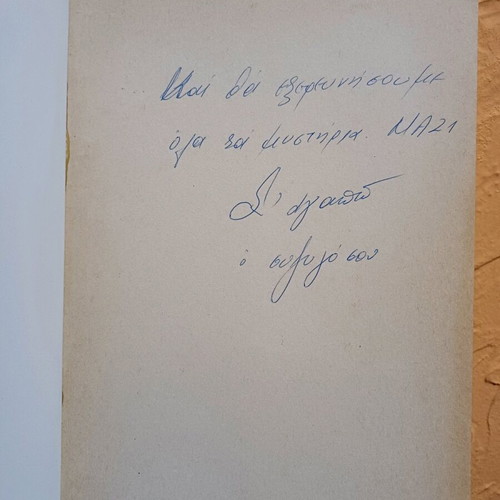 Και θά εξερευνήσουμε
όλα τά μυστήρια ΜΑΖΙ
Σ' αγαπώ
ό συζυγό σου